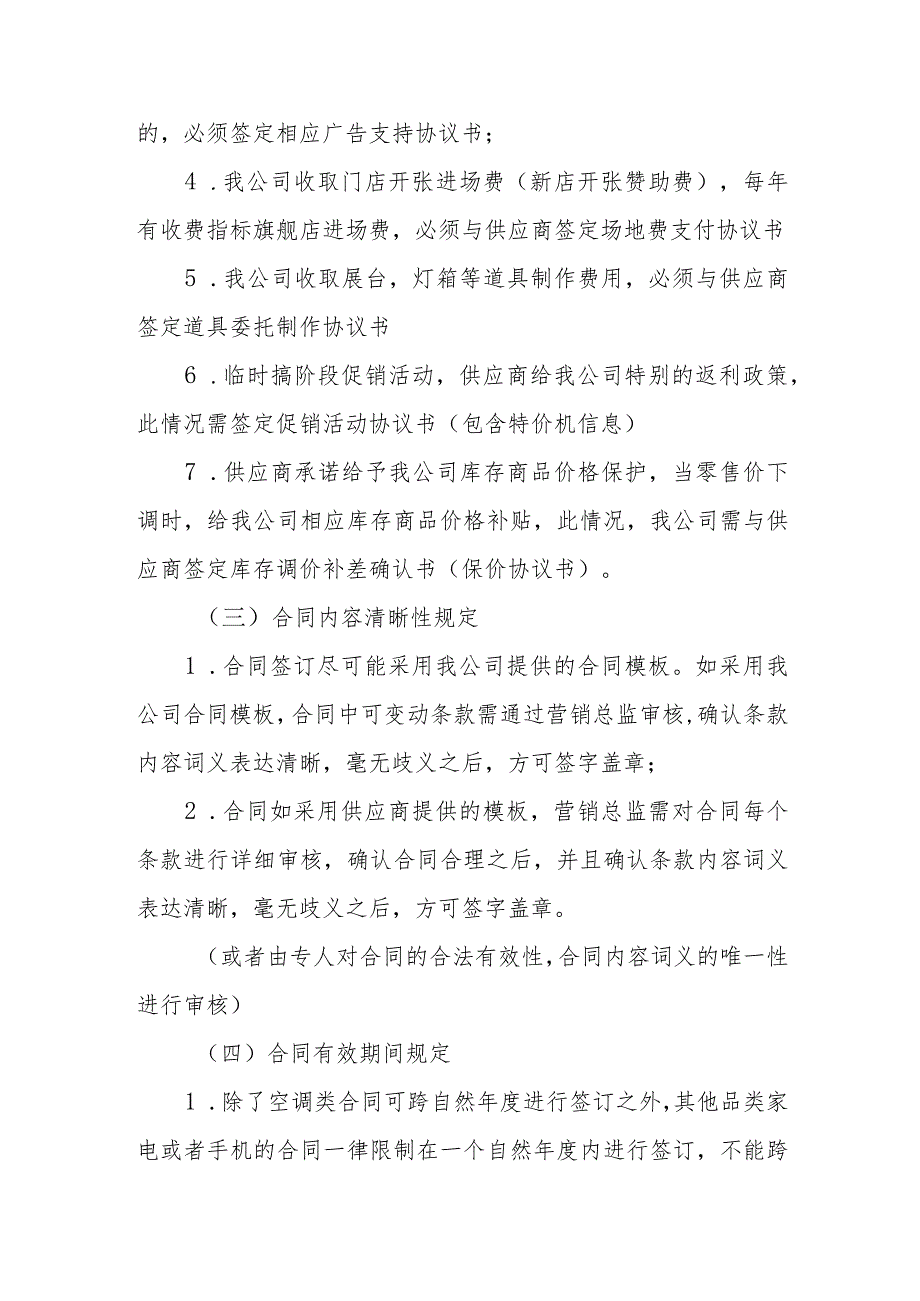 的，必须签定相应广告支持协议书；
4．我公司收取门店开张进场费（新店开张赞助费），每年
有收费指标旗舰店进场费，必须与供应商签定场地费支付协议书
5．我公司收取展台，灯箱等道具制作费用，必须与供应商
签定道具委托制作协议书
6．临时搞阶段促销活动，供应商给我公司特别的返利政策，
此情况需签定促销活动协议书（包含特价机信息）
7．供应商承诺给予我公司库存商品价格保护，当零售价下
调时，给我公司相应库存商品价格补贴，此情况，我公司需与供
应商签定库存调价补差确认书（保价协议书）。
（三）合同内容清晰性规定
1．合同签订尽可能采用我公司提供的合同模板。如采用我
公司合同模板，合同中可变动条款需通过营销总监审核，确认条款
内容词义表达清晰，毫无歧义之后，方可签字盖章；
2．合同如采用供应商提供的模板，营销总监需对合同每个
条款进行详细审核，确认合同合理之后，并且确认条款内容词义
表达清晰，毫无歧义之后，方可签字盖章。
（或者由专人对合同的合法有效性，合同内容词义的唯一性
进行审核）
（四）合同有效期间规定
1．除了空调类合同可跨自然年度进行签订之外，其他品类家
电或者手机的合同一律限制在一个自然年度内进行签订，不能跨